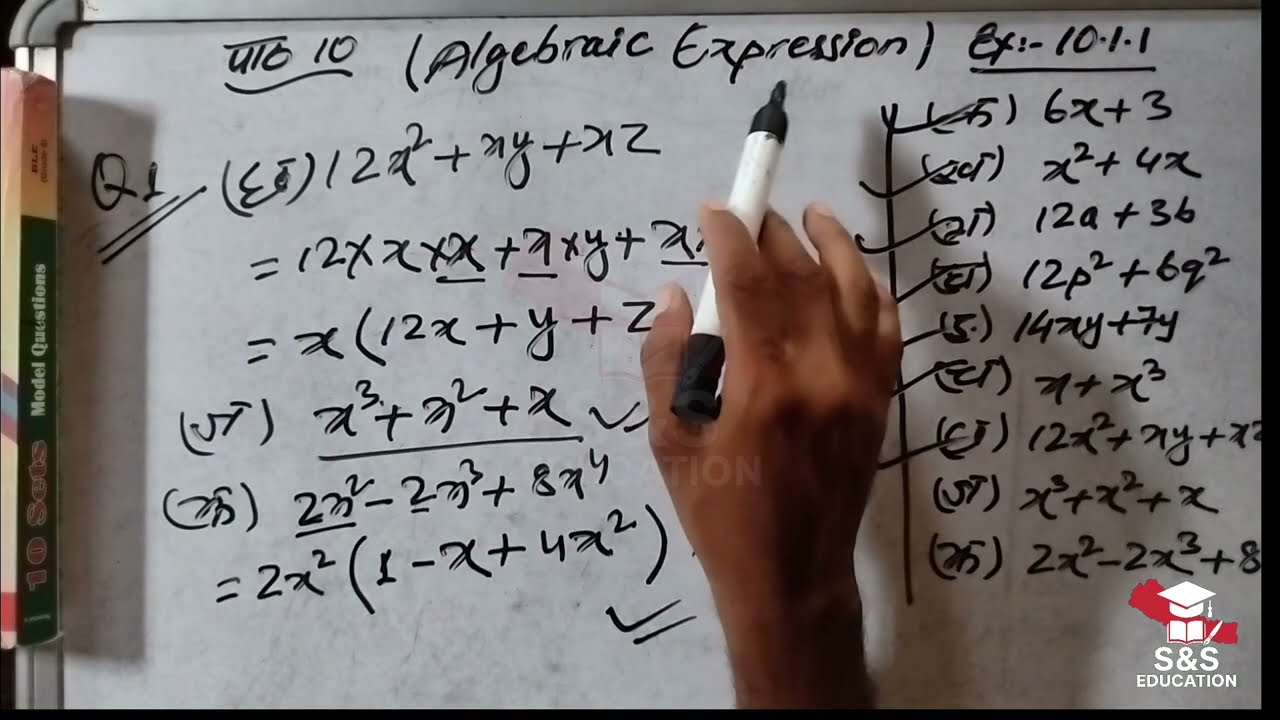 पाठ 10 (Algebraic Expression) Ex:- 10.1.1
Q1 (छ) 12x² + xy + xz
= 12 × x × x + x × y + x
= x (12x + y + z
(ज) x³ + x² + x
(झ) 2x² - 2x³ + 8x⁴
= 2x² (1 - x + 4x²)
(क) 6x + 3
(ख) x² + 4x
(ग) 12a + 3b
(घ) 12p² + 6q²
(ङ) 14xy + 7y
(च) x + x³
(छ) 12x² + xy + xz
(ज) x³ + x² + x
(झ) 2x² - 2x³ + 8
BLE
10 Sets Model Questions
S&S
EDUCATION